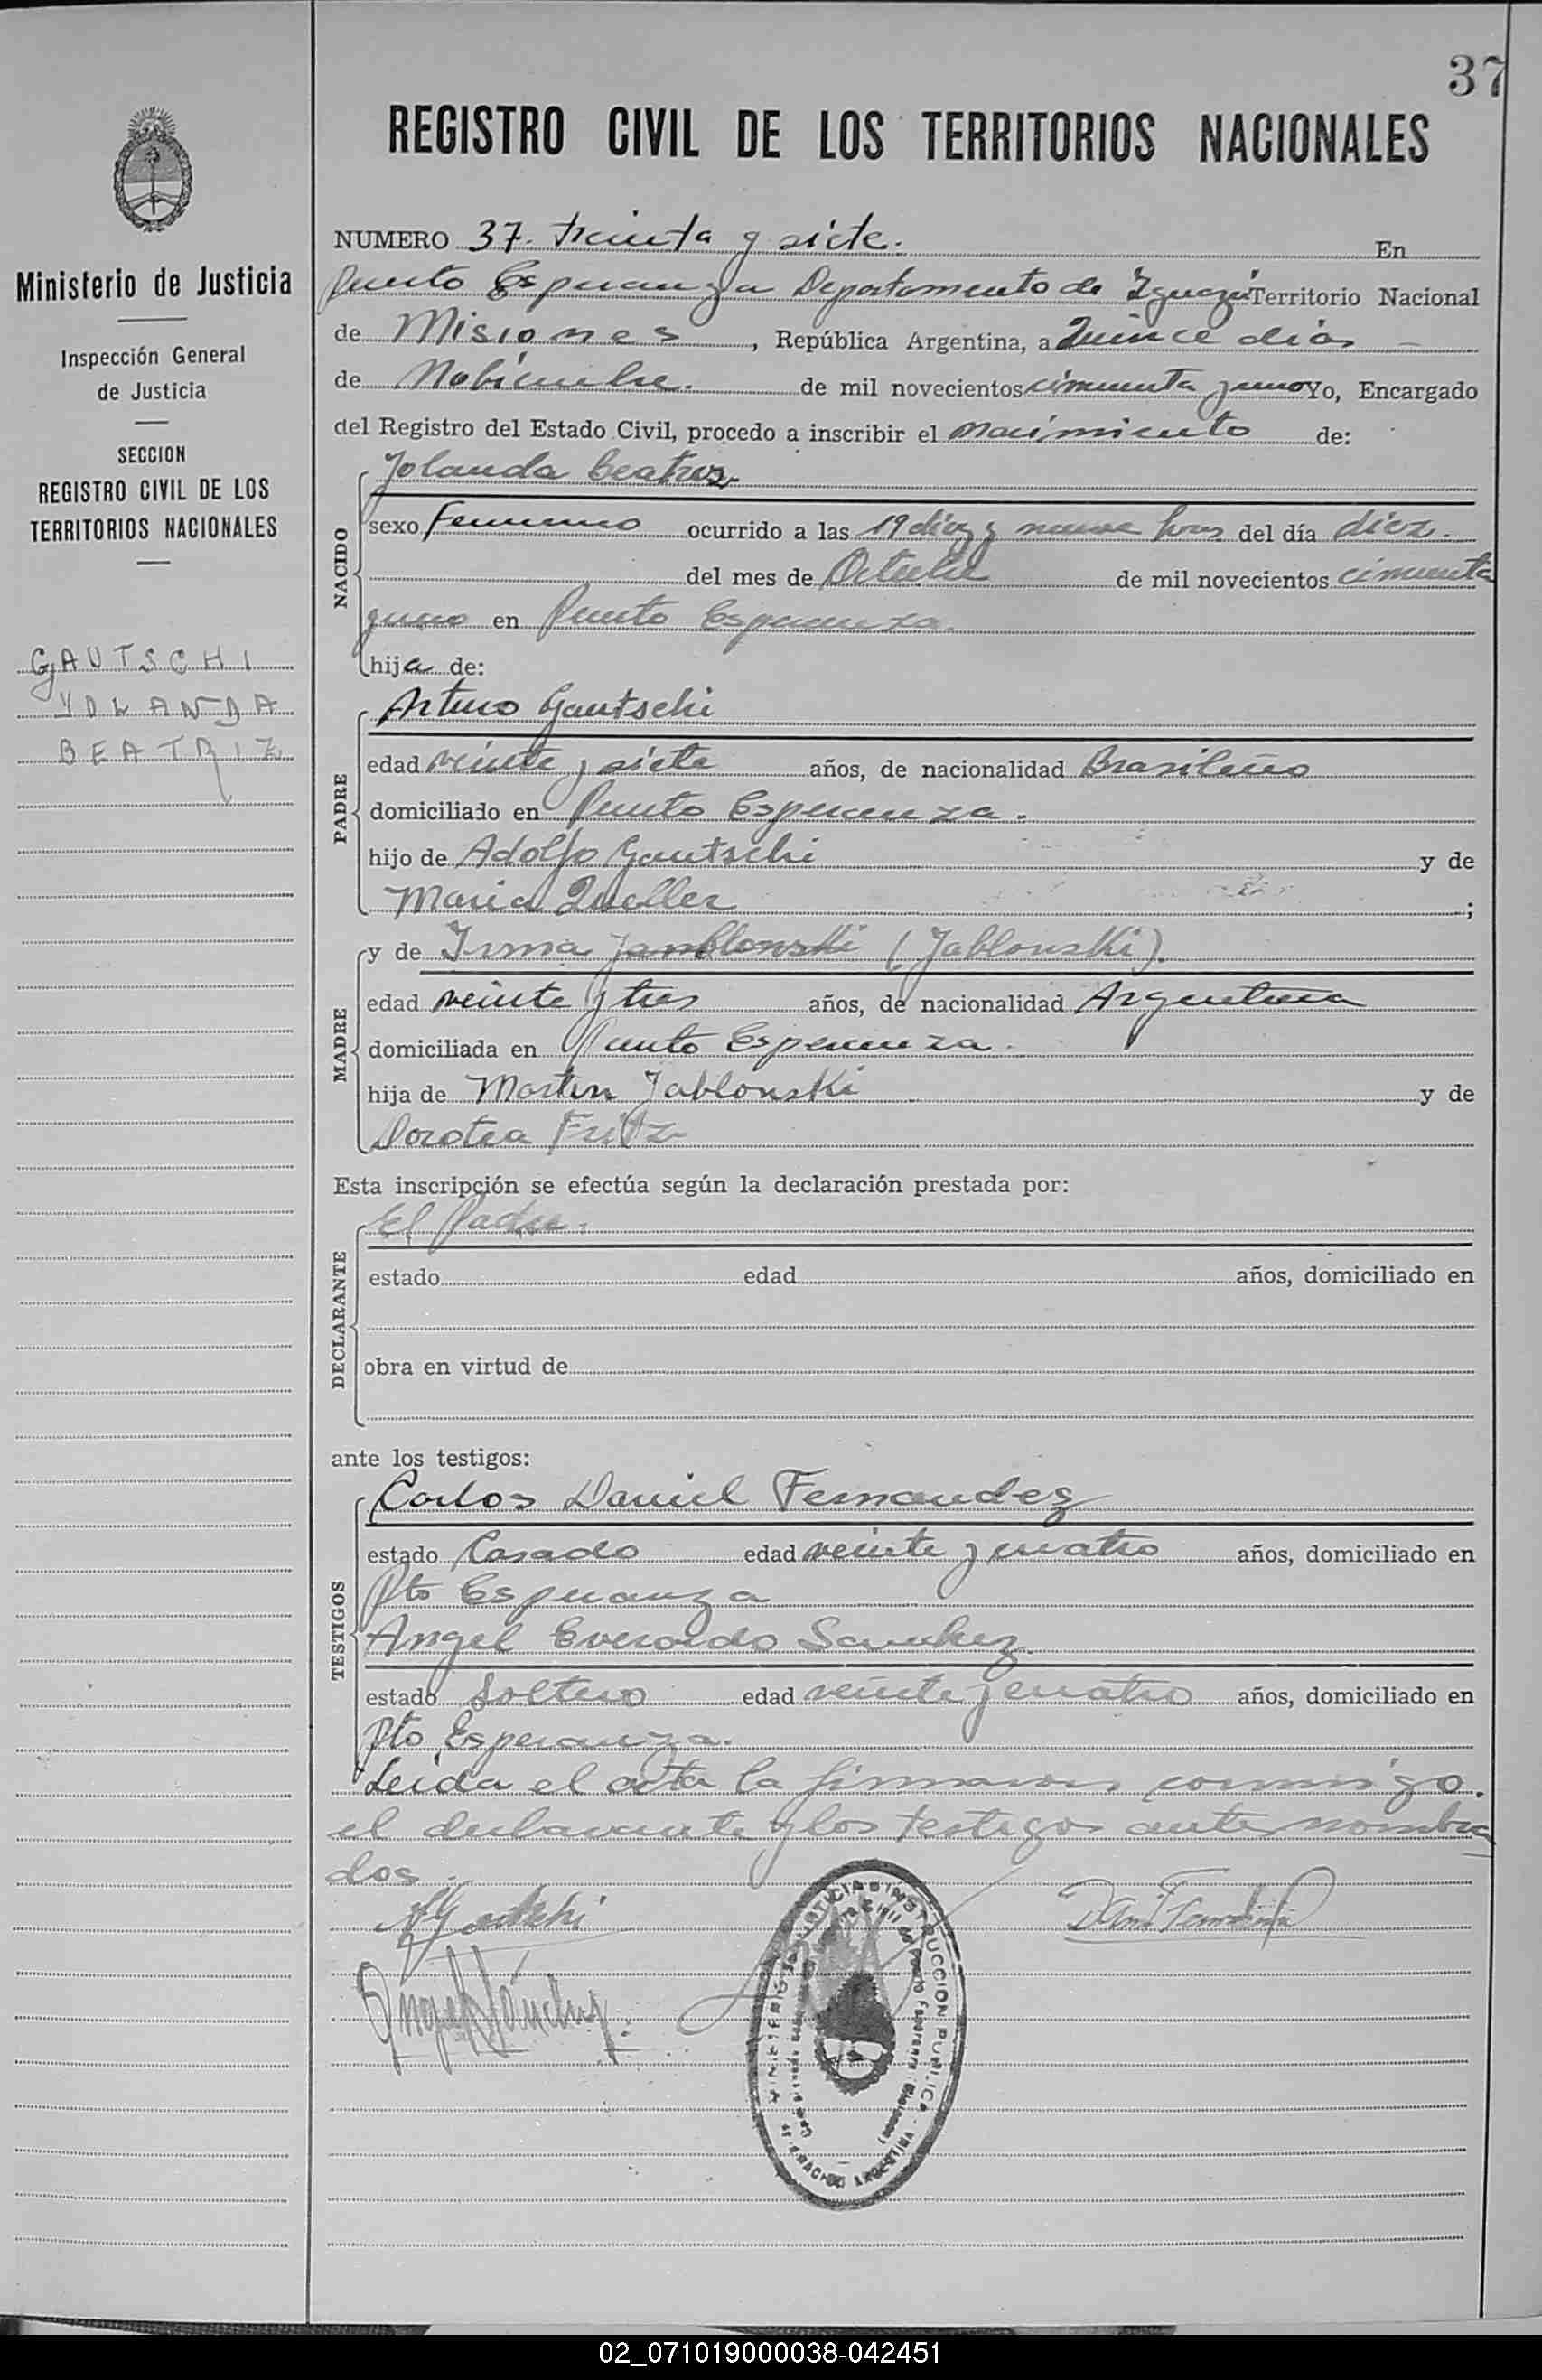 37
REGISTRO CIVIL DE LOS TERRITORIOS NACIONALES
Ministerio de Justicia
Inspección General
de Justicia
SECCION
REGISTRO CIVIL DE LOS
TERRITORIOS NACIONALES
GAUTSCHI
YOLANDA
BEATRIZ
NUMERO 37. treinta y siete. En
Puerto Esperanza Departamento de Iguazú Territorio Nacional
de Misiones, República Argentina, a Quince dias
de Nobiembre. de mil novecientos cincuenta y uno Yo, Encargado
del Registro del Estado Civil, procedo a inscribir el nacimiento de:
NACIDO
Yolanda Beatriz
sexo Femenino ocurrido a las 19 diez y nueve horas del día diez.
del mes de Octubre de mil novecientos cincuenta
y uno en Puerto Esperanza.
hija de:
PADRE
Arturo Gautschi
edad veinte y siete años, de nacionalidad Brasileño
domiciliado en Puerto Esperanza.
hijo de Adolfo Gautschi y de
Maria Queller;
MADRE
y de Irma Jamblonski (Jablonski).
edad veinte y tres años, de nacionalidad Argentina
domiciliada en Puerto Esperanza.
hija de Martin Jablonski y de
Dorotea Fritz
Esta inscripción se efectúa según la declaración prestada por:
DECLARANTE
El Padre.
estado edad años, domiciliado en
obra en virtud de
ante los testigos:
TESTIGOS
Carlos Daniel Fernandez
estado Casado edad veinte y cuatro años, domiciliado en
Pto Esperanza
Angel Everaldo Sanchez
estado Soltero edad veinte y cuatro años, domiciliado en
Pto Esperanza.
Leida el acta la firmaron conmigo.
el declarante y los testigos ante nombra
dos.
AGautschi
Angel Sánchez
INSTRUCCION PUBLICA
02_071019000038-042451